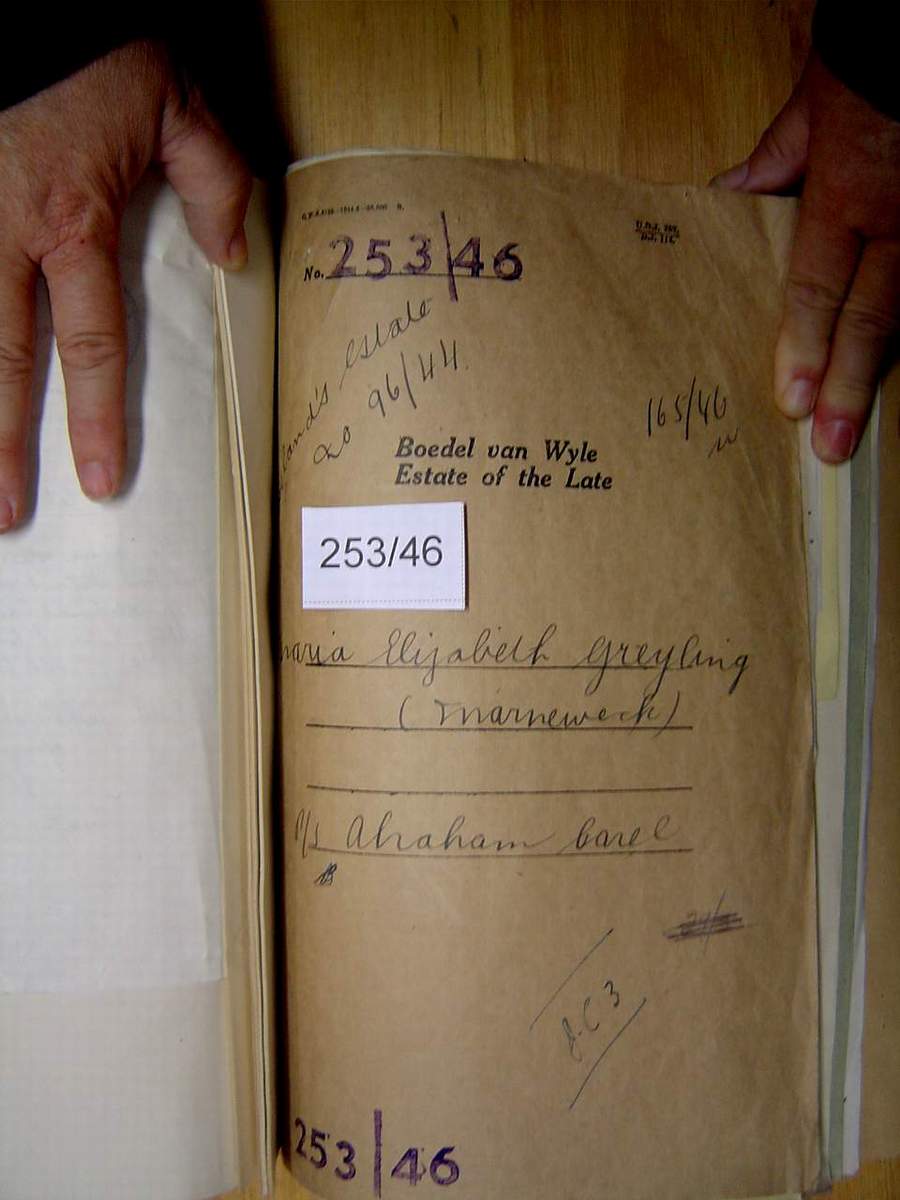 No. 253/46
estate
96/44
165/46
Boedel van Wyle
Estate of the Late
253/46
maria Elizabeth Greyling
(Marneweck)
Abraham Carel
253/46